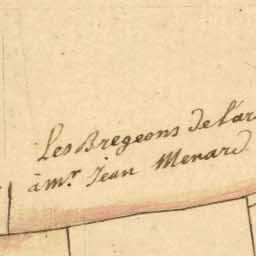 Les Bregeons de l'ar
à mr. Jean Menard